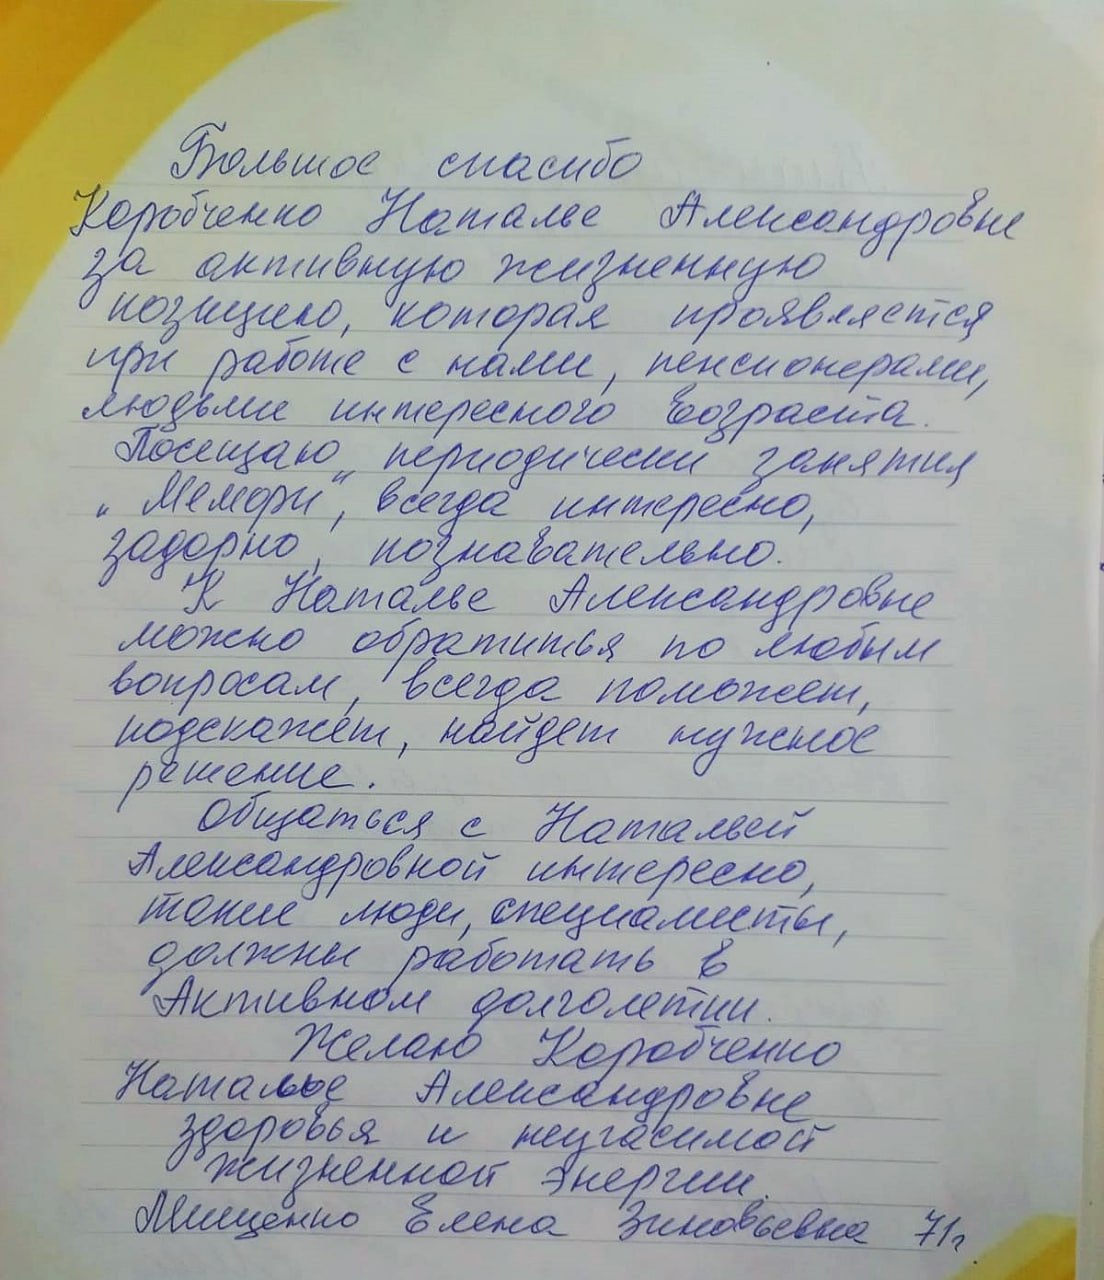 Большое спасибо
Коробченко Наталье Александровне
за активную жизненную
позицию, которая проявляется
при работе с нами, пенсионерами,
людьми интересного возраста.
Посещаю периодически занятия
„Мемори", всегда интересно,
задорно, познавательно.
К Наталье Александровне
можно обратиться по любым
вопросам, всегда поможет,
подскажет, найдет нужное
решение.
Общаться с Натальей
Александровной интересно,
такие люди, специалисты,
должны работать в
Активном долголетии.
Желаю Коробченко
Наталье Александровне
здоровья и неугасимой
жизненной энергии.
Мищенко Елена Зиновьевна 71г